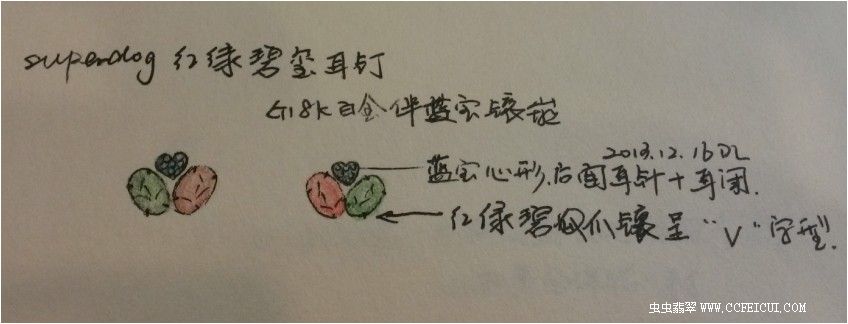 superdog 红绿碧玺耳钉
G18K白金伴蓝宝镶嵌
2013.12.16DL
蓝宝心形,后面耳针+耳闭.
红绿碧玺爪镶呈“V”字型.
虫虫翡翠 WWW.CCFEICUI.COM